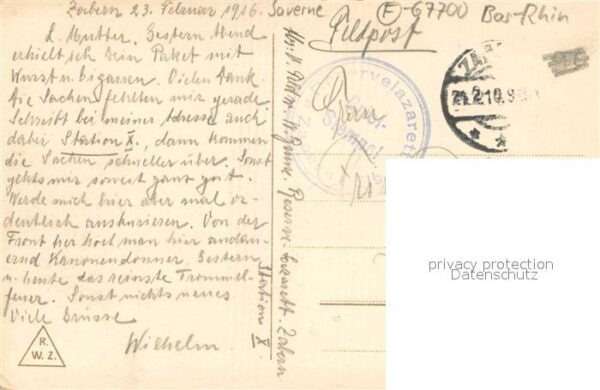 Zabern 23. Februar 1916. Saverne
F-67700 Bas-Rhin
L. Mutter. Gestern Abend
erhielt ich Dein Paket mit
Wurst u. Cigarren. Vielen Dank.
Die Sachen fehlten mir gerade.
Schreibt bei meiner Adresse auch
dabei Station X., dann kommen
die Sachen schneller über. Sonst
gehts mir soweit ganz gut.
Werde mich hier aber mal or-
dentlich auskurieren. Von der
Front her hört man hier andau-
ernd Kanonendonner. Gestern
u. heute das reinste Trommel-
feuer. Sonst nichts neues
Viele Grüsse
Wilhelm.
R.
W. Z.
Reserve-Lazarett. Zabern
Station X.
Feldpost
Reservelazarett
Stempel
Frau
privacy protection
Datenschutz